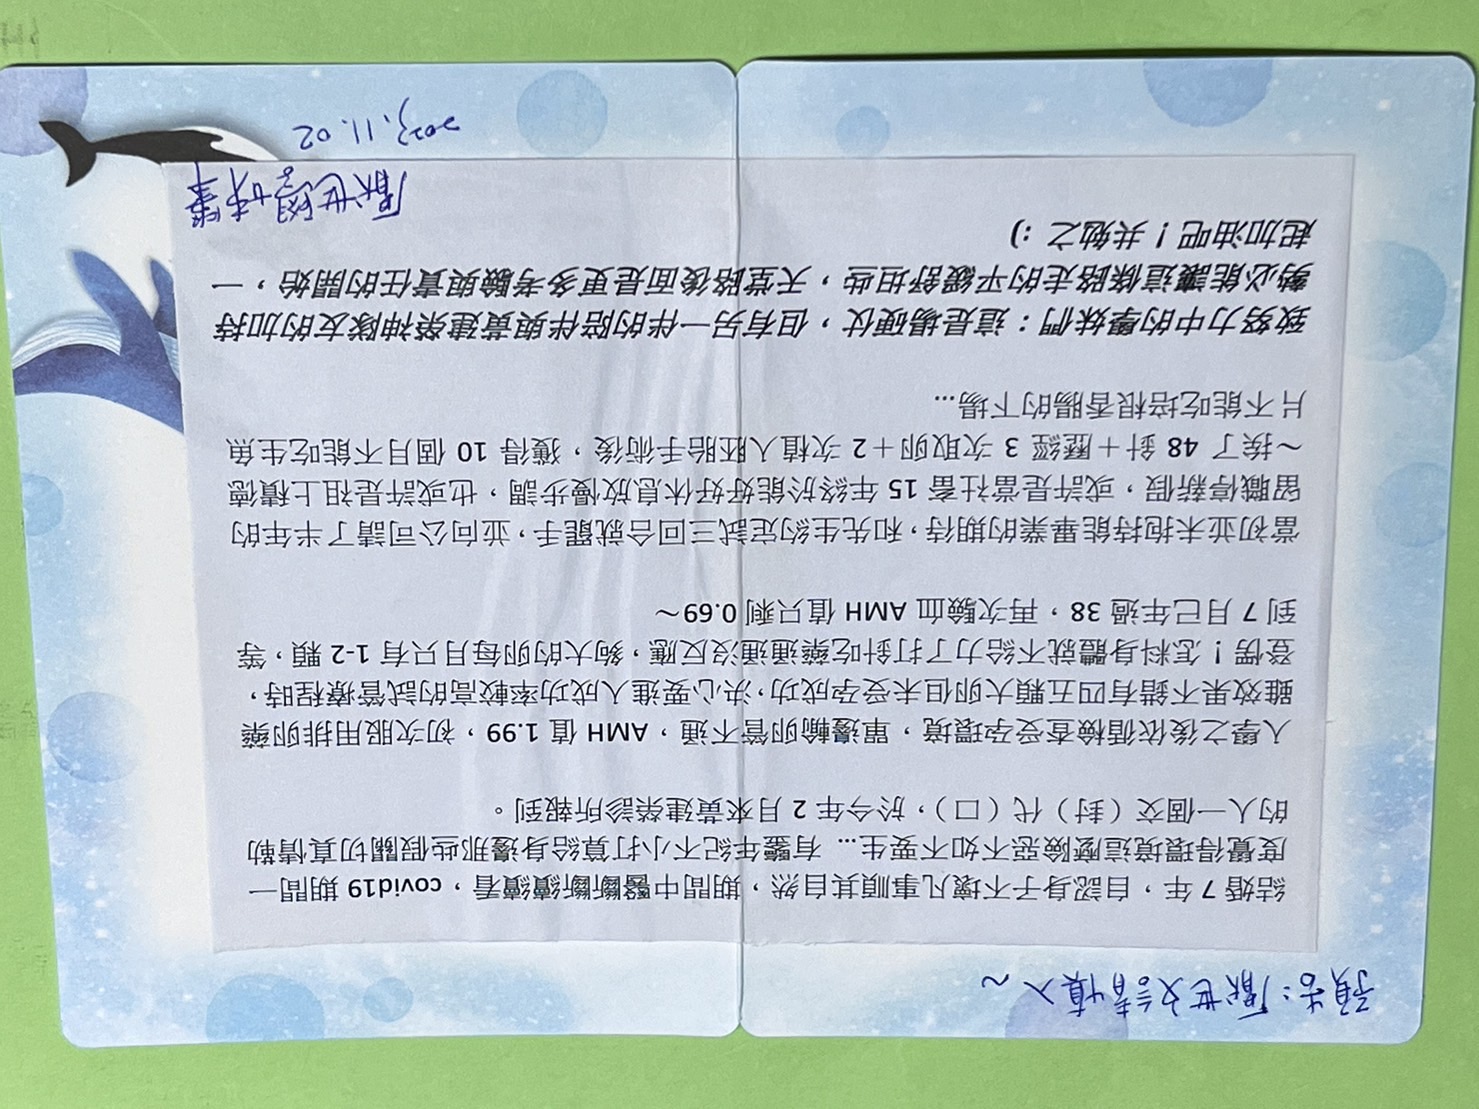 預告：厭世文請慎入～
結婚 7 年，自認身子不壞凡事順其自然，期間中醫斷斷續續看，covid19 期間一
度覺得環境這麼險惡不如不要生… 有鑒年紀不小打算給身邊那些假關切真情勒
的人一個交（封）代（口），於今年 2 月來黃建榮診所報到。
入學之後依循檢查受孕環境，單邊輸卵管不通，AMH 值 1.99，初次服用排卵藥
雖效果不錯有四五顆大卵但未受孕成功，決心要進入成功率較高的試管療程時，
登愣！怎料身體就不給力了打針吃藥通通沒反應，夠大的卵每月只有 1-2 顆，等
到 7 月已年過 38，再次驗血 AMH 值只剩 0.69～
當初並未抱持能畢業的期待，和先生約定試三回合就罷手，並向公司請了半年的
留職停薪假，或許是當社畜 15 年終於能好好休息放慢步調，也或許是祖上積德
～挨了 48 針＋歷經 3 次取卵＋2 次植入胚胎手術後，獲得 10 個月不能吃生魚
片不能吃培根香腸的下場…
致努力中的學妹們：這是場硬仗，但有另一伴的陪伴與黃建榮神隊友的加持
勢必能讓這條路走的平緩舒坦些，天堂路後面是更多考驗與責任的開始，一
起加油吧！共勉之 :)
厭世
2023.11.02